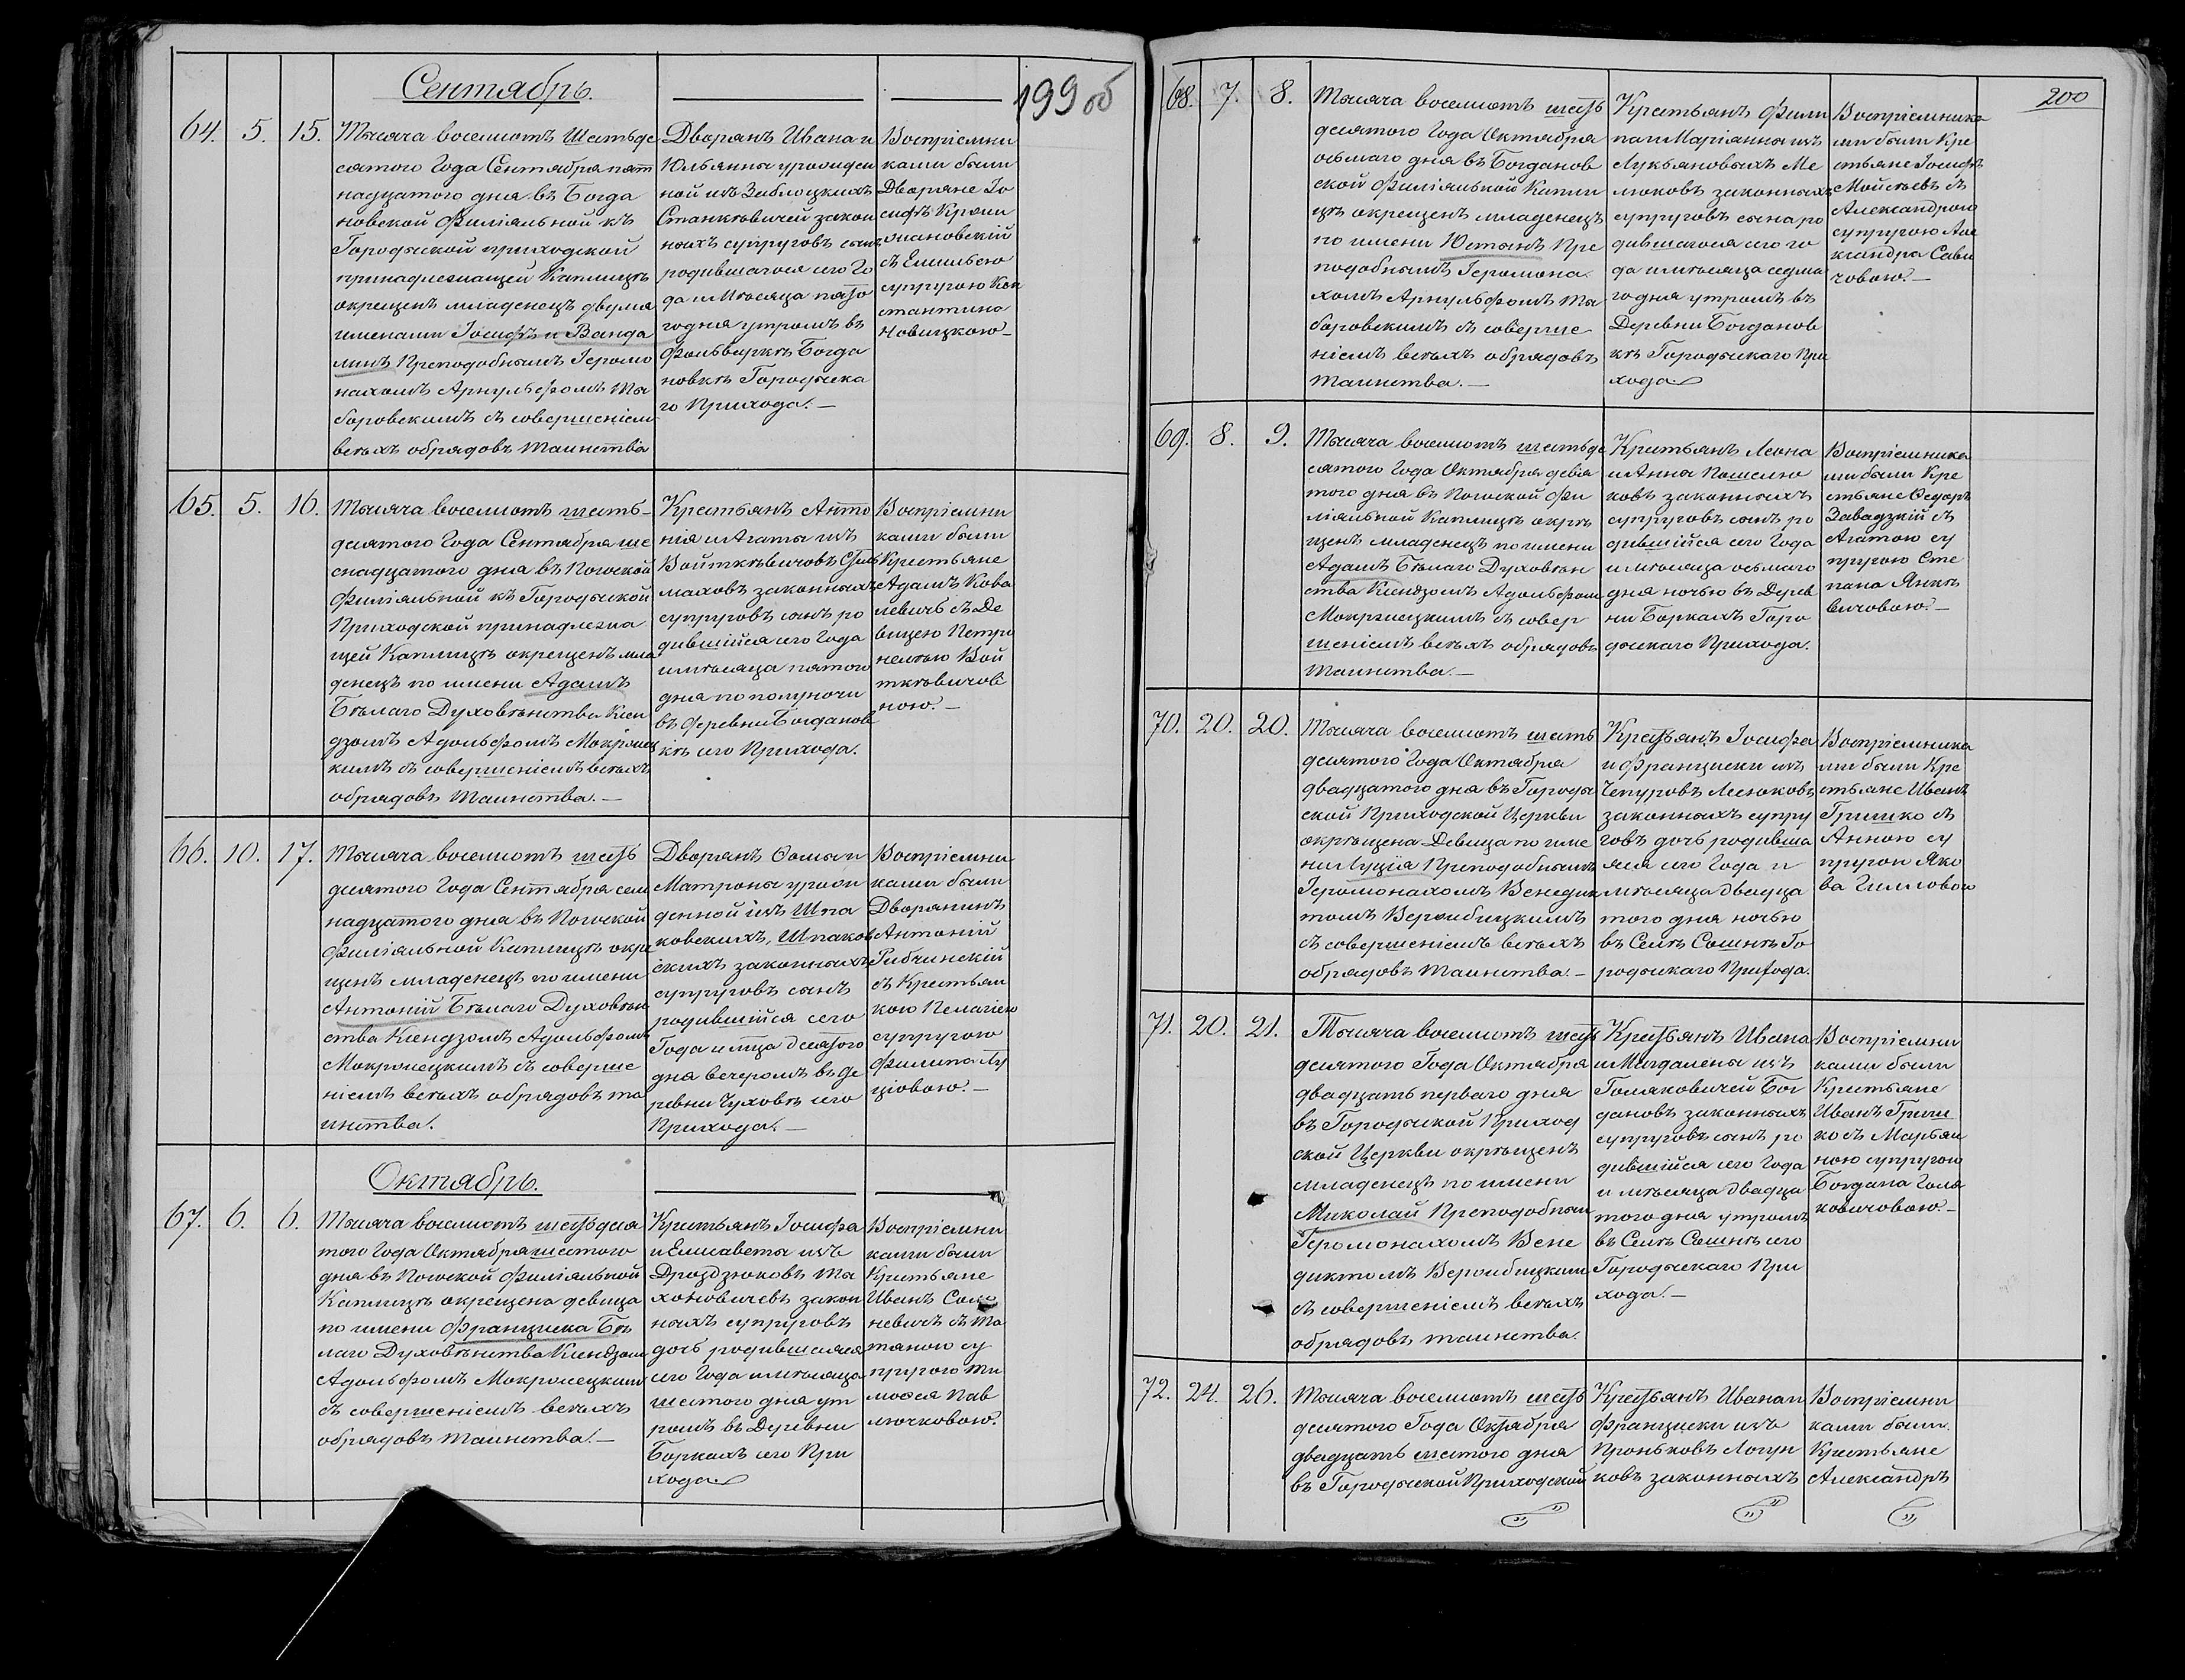 199 об
Сентябрь.
64. 5. 15.
Тысяча восемьсотъ Шестьде
сятого Года Сентября пят
надцатого дня въ Богда
новской Филіяльной къ
Городыской приходской
принадлежащей Каплицѣ
окрещенъ младенецъ двумя
именами Іосифъ и Ванда
линъ Преподобнымъ Іеромо
нахомъ Арнульфомъ Ты
боровскимъ съ совершеніем
всѣхъ обрядовъ Таинства
Дворянъ Ивана и
Юльянны урожден
ной изъ Заблоцкихъ
Станкѣвичей закон
ныхъ супруговъ сынъ
родившагося сего Го
да и Мѣсяца пято
го дня утромъ въ
Фольваркѣ Богда
новкѣ Городыска
го Прихода.—
Воспріемни
ками были
Дворяне Іо
сифъ
съ Емильею
супругою Кон
стантина
Новицкою—
65. 5. 16.
Тысяча восемьсотъ шесть-
десятого Года Сентября ше
снадцатого дня въ Погоской
Филіяльной къ Городыской
Приходской принадлежа
щей Каплицѣ окрещенъ мла
денецъ по имени Адамъ
Бѣлаго Духовѣнства Ксен
дзомъ Адольфомъ Мокржец
кимъ съ совершеніемъ всѣхъ
обрядовъ Таинства.—
Крестьянъ Анто
нія и Агаты изъ
Войткѣвичовъ
законныхъ
супруговъ сынъ ро
дившійся сего Года
и мѣсяца пятого
дня по полуночи
въ деревни Богданов
кѣ сего Прихода.
Воспріемни
ками были
Крестьяне
Адамъ Кова
левичъ съ Де
вицею Петро
нелею Вой
ткѣвичов
ною.—
66. 10. 17.
Тысяча восемьсотъ шесть
десятого Года Сентября сем
надцатого дня въ Погоской
Филіяльной Каплицѣ окре
щенъ младенецъ по имени
Антоній Бѣлаго Духовѣн
ства Ксендзомъ Адольфомъ
Мокржецкимъ съ соверше
ніемъ всѣхъ обрядовъ та
инства.
Дворянъ Фомы и
Матроны урож
денной изъ Шпа
ковскихъ, Шпаков
скихъ законныхъ
супруговъ сынъ
родившійся сего
Года и мца десятого
дня вечеромъ въ де
ревни Чуховѣ сего
Прихода.—
Воспріемни
ками были
Дворянинъ
Антоній
Рибчинскій
съ Крестьян
кою Пелагіею
супругою
Филипа Лу
ціовою.—
Октябрь.
67. 6. 6.
Тысяча восемьсотъ шестьдеся
того Года Октября шестого
дня въ Погоской Филіяльной
Каплицѣ окрещена девица
по имени Франциска Бѣ
лаго Духовѣнства Ксендзом
Адольфомъ Мокржецким
съ совершеніемъ всѣхъ
обрядовъ Таинства.—
Крестьянъ Іосифа
и Елисаветы изъ
Дроздзюковъ Ты
хоновичевъ закон
ныхъ супруговъ
дочь родившаяся
сего Года и мѣсяца
шестого дня ут
ромъ въ Деревни
Боркахъ сего При
хода.
Воспріемни
ками были
Крестьяне
Иванъ
съ Та
тяною су
пругою Ти
мофея Пав
лючковою.
200
68. 7. 8.
Тысяча восемьсотъ шесть
десятого Года Октября
осьмаго дня въ Богданов
ской Филіяльной Капли
цѣ окрещенъ младенецъ
по имени Юстынъ Пре
подобнымъ Іеромона
хомъ Арнульфомъ Ты
боровскимъ съ соверше
ніемъ всѣхъ обрядовъ
Таинства.—
Крестьянъ Фили
па и Маріянны изъ
Лукьяновыхъ Ме
люковъ законныхъ
супруговъ сына ро
дившагося сего го
да и мѣсяца седма
го дня утромъ въ
Деревни Богданов
кѣ Городыскаго При
хода.
Воспріемника
ми были Кре
стьяне Іосифъ
Мойсѣевъ съ
Александрою
супругою Але
ксандра Сави
човою.—
69. 8. 9.
Тысяча восемьсотъ шестьде
сятого Года Октября девя
того дня въ Погоской Фи
ліяльной Каплицѣ окрѣ
щенъ младенецъ по имени
Адамъ Бѣлаго Духовѣн
ства Ксендзомъ Адольфом
Мокржецкимъ съ совер
шеніемъ всѣхъ обрядовъ
Таинства.—
Крестьянъ Леона
и Анна Помелю
ковъ законныхъ
супруговъ сынъ ро
дившійся сего Года
и мѣсяца осьмаго
дня ночью въ Дерев
ни Боркахъ Горо
дыскаго Прихода.
Воспріемника
ми были Кре
стьяне Ѳедоръ
Завадзкій съ
Агатою су
пругою Сте
пана Янкѣ
вичовою.—
70. 20. 20.
Тысяча восемьсотъ шесть
десятого Года Октября
двадцатого дня въ Городы
ской Приходской Церкви
окрѣщена Девица по име
ни Луція Преподобнымъ
Іеромонахомъ Бенедик
томъ Вержбицкимъ
съ совершеніемъ всѣхъ
обрядовъ Таинства.—
Крестьянъ Іосифа
и Франциски изъ
Чепуровъ Лесюковъ
законныхъ супру
говъ дочь родивша
яся сего Года и
мѣсяца двадца
того дня ночью
въ Селѣ Сошнѣ Го
родыскаго Прихода.
Воспріемника
ми были Кре
стьяне Иванъ
Гришко съ
Анною су
пругою Яко
ва
71. 20. 21.
Тысяча восемьсотъ шесть
десятого Года Октября
двадцать перваго дня
въ Городыской Приход
ской Церкви окрѣщенъ
младенецъ по имени
Миколай Преподобным
Іеромонахомъ Бене
диктомъ Вержбицким
съ совершеніемъ всѣхъ
обрядовъ таинства.
Крестьянъ Ивана
и Магдалены изъ
Голяковичей Бог
дановъ законныхъ
супруговъ сынъ ро
дившійся сего Года
и мѣсяца двадца
того дня утромъ
въ Селѣ Сошнѣ сего
Городыскаго При
хода.—
Воспріемни
ками были
Крестьяне
Иванъ Гриш
ко съ Марьян
ною супругою
Богдана Голя
ковичовою.—
72. 24. 26.
Тысяча восемьсотъ шесть
десятого Года Октября
двадцать шестого дня
въ Городыской Приходской
Крестьянъ Ивана и
Франциски изъ
Проньковъ Логун
ковъ законныхъ
Воспріемни
ками были
Крестьяне
Александръ